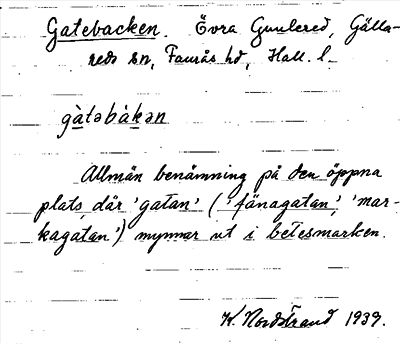 Gatebacken. Övra Gunlered, Gälla-
reds sn, Faurås hd, Hall. l.
gàtəbàkən
Allmän benämning på den öppna
plats, där 'gatan' ('fänagatan', 'mar-
kagatan') mynnar ut i betesmarken.
K. Nordstrand 1939.